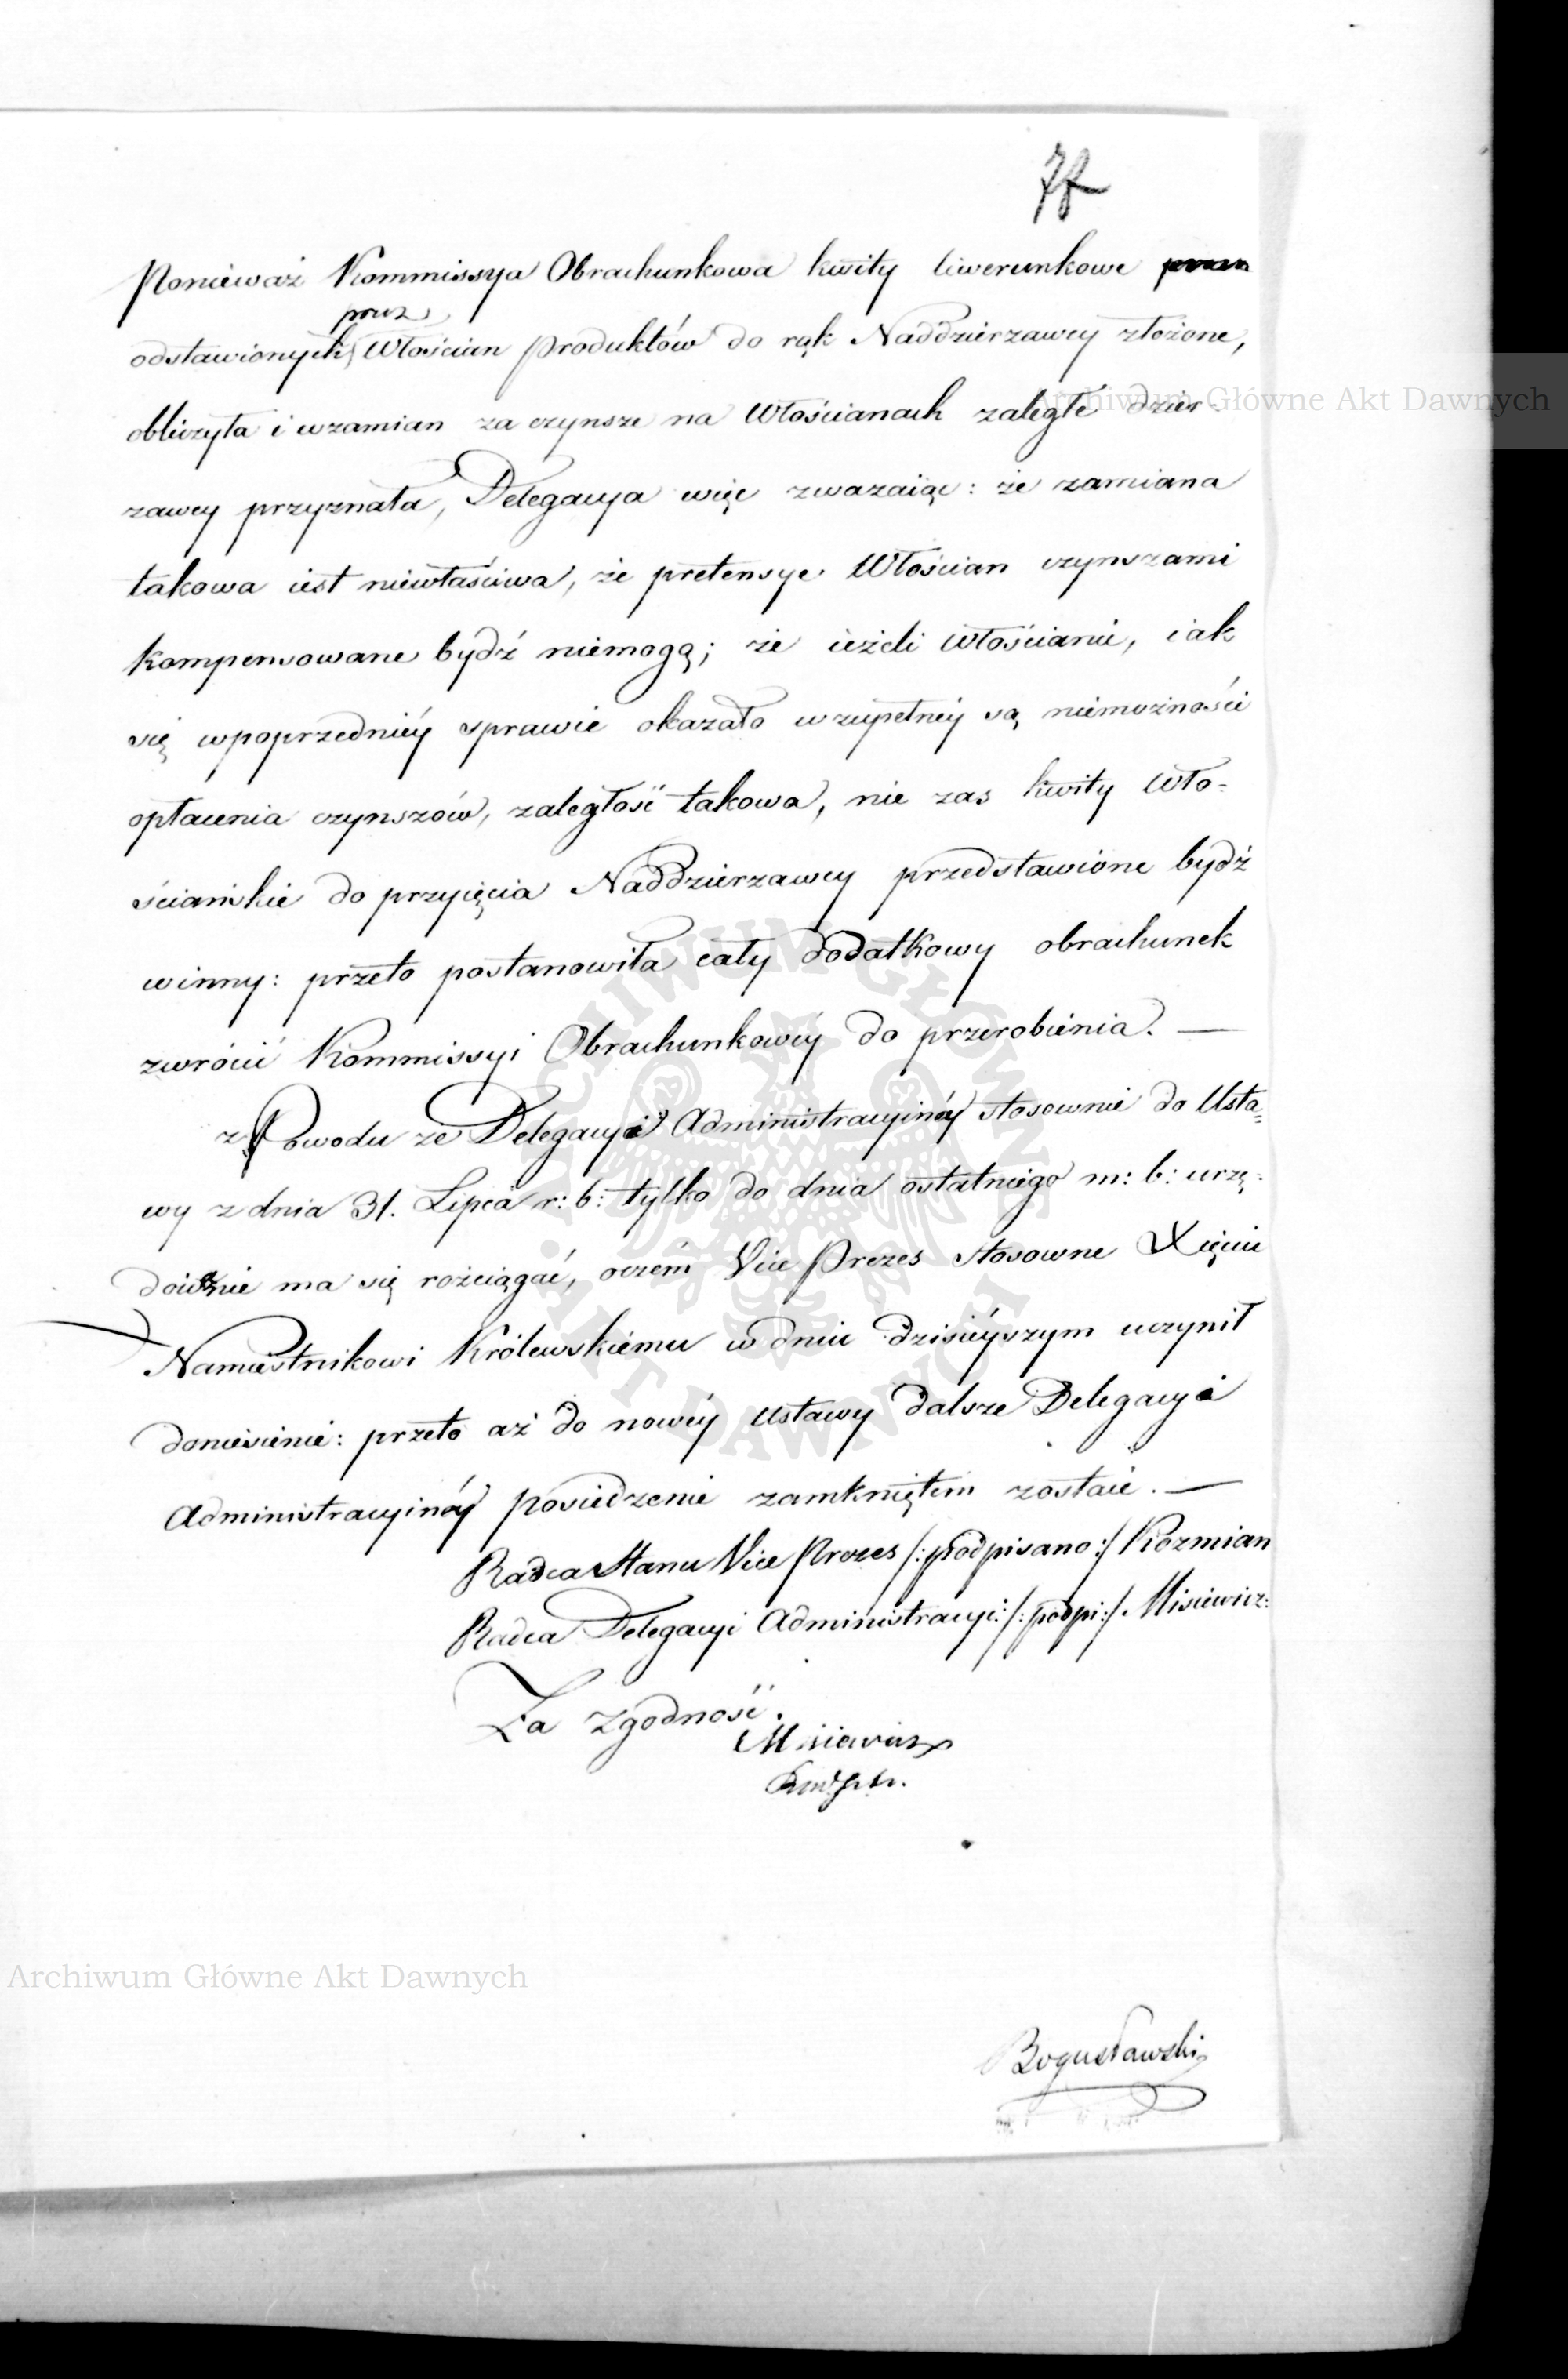 78
Ponieważ Kommissya Obrachunkowa kwity liwerunkowe przez
przez
odstawionych Włościan produktów do rąk Naddzierzawcy złożone,
obliczyła i wzamian za czynsze na Włościanach zaległe dzier-
zawcy przyznała, Delegacya więc zwazaiąc: że zamiana
takowa iest niewłaściwa, że pretensye Włościan czynszami
kompensowane bydź niemogą; że ieżeli Włościanie, iak
się wpoprzedniéy sprawie okazało wzupełnéy są niemożności
opłacenia czynszów, zaległość takowa, nie zas kwity Wło-
ściańskie do przyięcia Naddzierzawcy przedstawione bydź
winny: przeto postanowiła cały dodatkowy obrachunek
zwrócić Kommissyi Obrachunkowéy do przerobienia. —
z Powodu ze Delegacyi Administracyinéy stosownie do Usta=
wy z dnia 31. Lipca r: b: tylko do dnia ostatniego m: b: urzę-
dowanie ma się rozciągać, oczém Vice Prezes stosowne Xięciu
Namiestnikowi Królewskiému w dniu dzisiéyszym uczynił
doniesienie: przeto aż do nowéy Ustawy dalsze Delegacyi
Administracyinéy posiedzenie zamkniętem zostaie. —
Radca Stanu Vice Prezes /:podpisano:/ Kozmian
Radca Delegacyi Administracyi:/:podpi:/ Misiewicz:
Za Zgodność.
Misiewicz
Bogusławski
Archiwum Główne Akt Dawnych
Archiwum Główne Akt Dawnych
ARCHIWUM GŁÓWNE AKT DAWNYCH